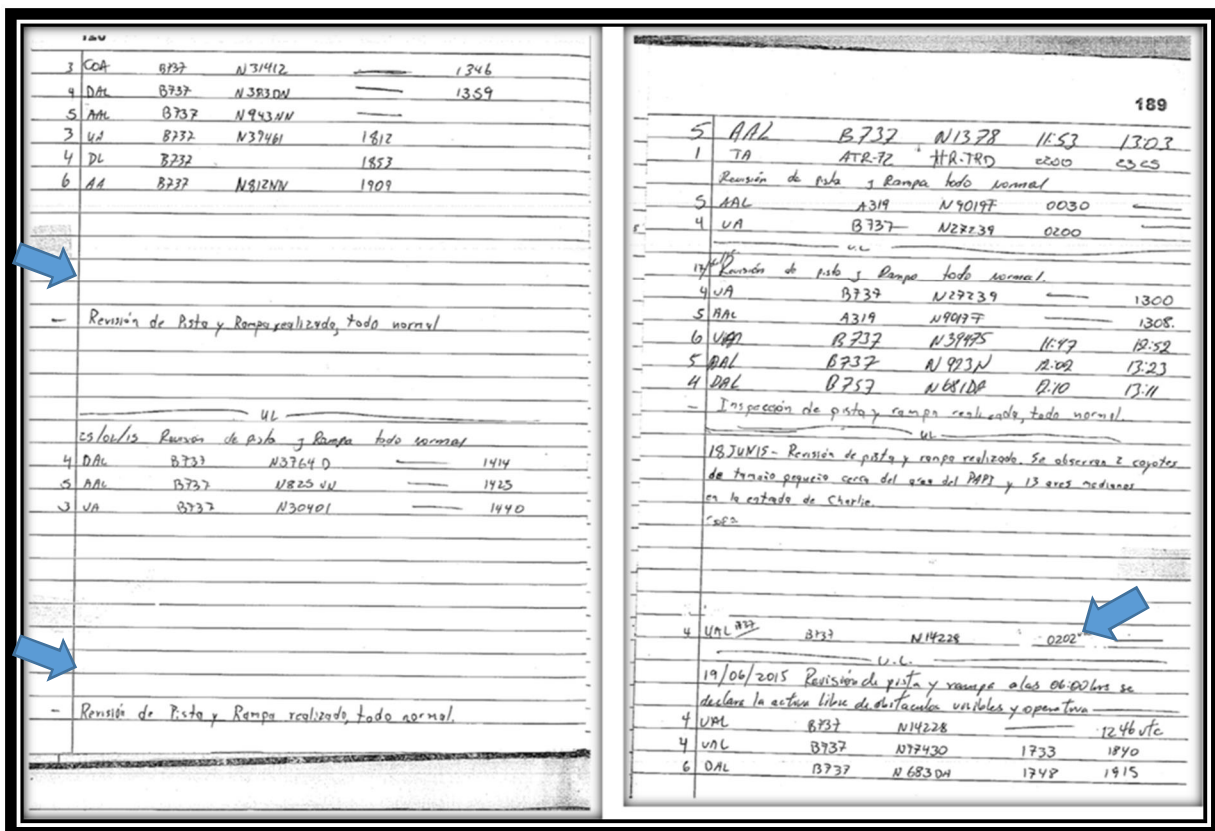 120
3 COA B737 N31412 — 1346
4 DAL B737 N383DN — 1359
5 AAL B737 N943NN —
3 UA B737 N39461 1812
4 DL B737 1853
6 AA B737 N812NN 1909
— Revisión de Pista y Rampa realizado, todo normal
UL
25/02/15 Revisión de pista y Rampa todo normal
4 DAL B737 N3764D — 1414
5 AAL B737 N825NN — 1425
3 UA B737 N30401 — 1440
— Revisión de Pista y Rampa realizado, todo normal.
189
5 AAL B737 N1378 11:53 13:03
1 TA ATR-72 HR-TRD
Revisión de pista y Rampa todo normal
5 AAL A319 N9019F 0030 —
4 UA B737 N27239 0200 —
U.L
Revisión de pista y Rampa todo normal.
4 UA B737 N27239 — 1300
5 AAL A319 — 1308.
6 B737 N39475 11:47 12:52
5 AAL B737 N923N 12:02 13:23
4 DAL B757 12:10 13:11
— Inspección de pista y rampa realizada, todo normal.
UL
18 JUN15- Revisión de pista y rampa realizado. Se observan 2 coyotes
de tamaño pequeño cerca del area del PAPI y 13 aves medianas
en la entrada de Charlie.
4 UAL B737 N14228 0202 —
U.L.
19/06/2015 Revisión de pista y rampa a las 06:00 hrs se
declara la activa libre de obstaculos visibles y operativa —
4 UAL B737 N14228 — 1246 utc
4 UAL B737 N77430 1733 1840
6 DAL B737 N683DA 1748 1915